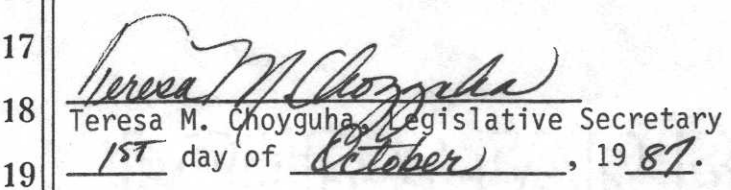 17
Teresa M. Choyguha
18 Teresa M. Choyguha, Legislative Secretary
19 1ST day of October, 1987.